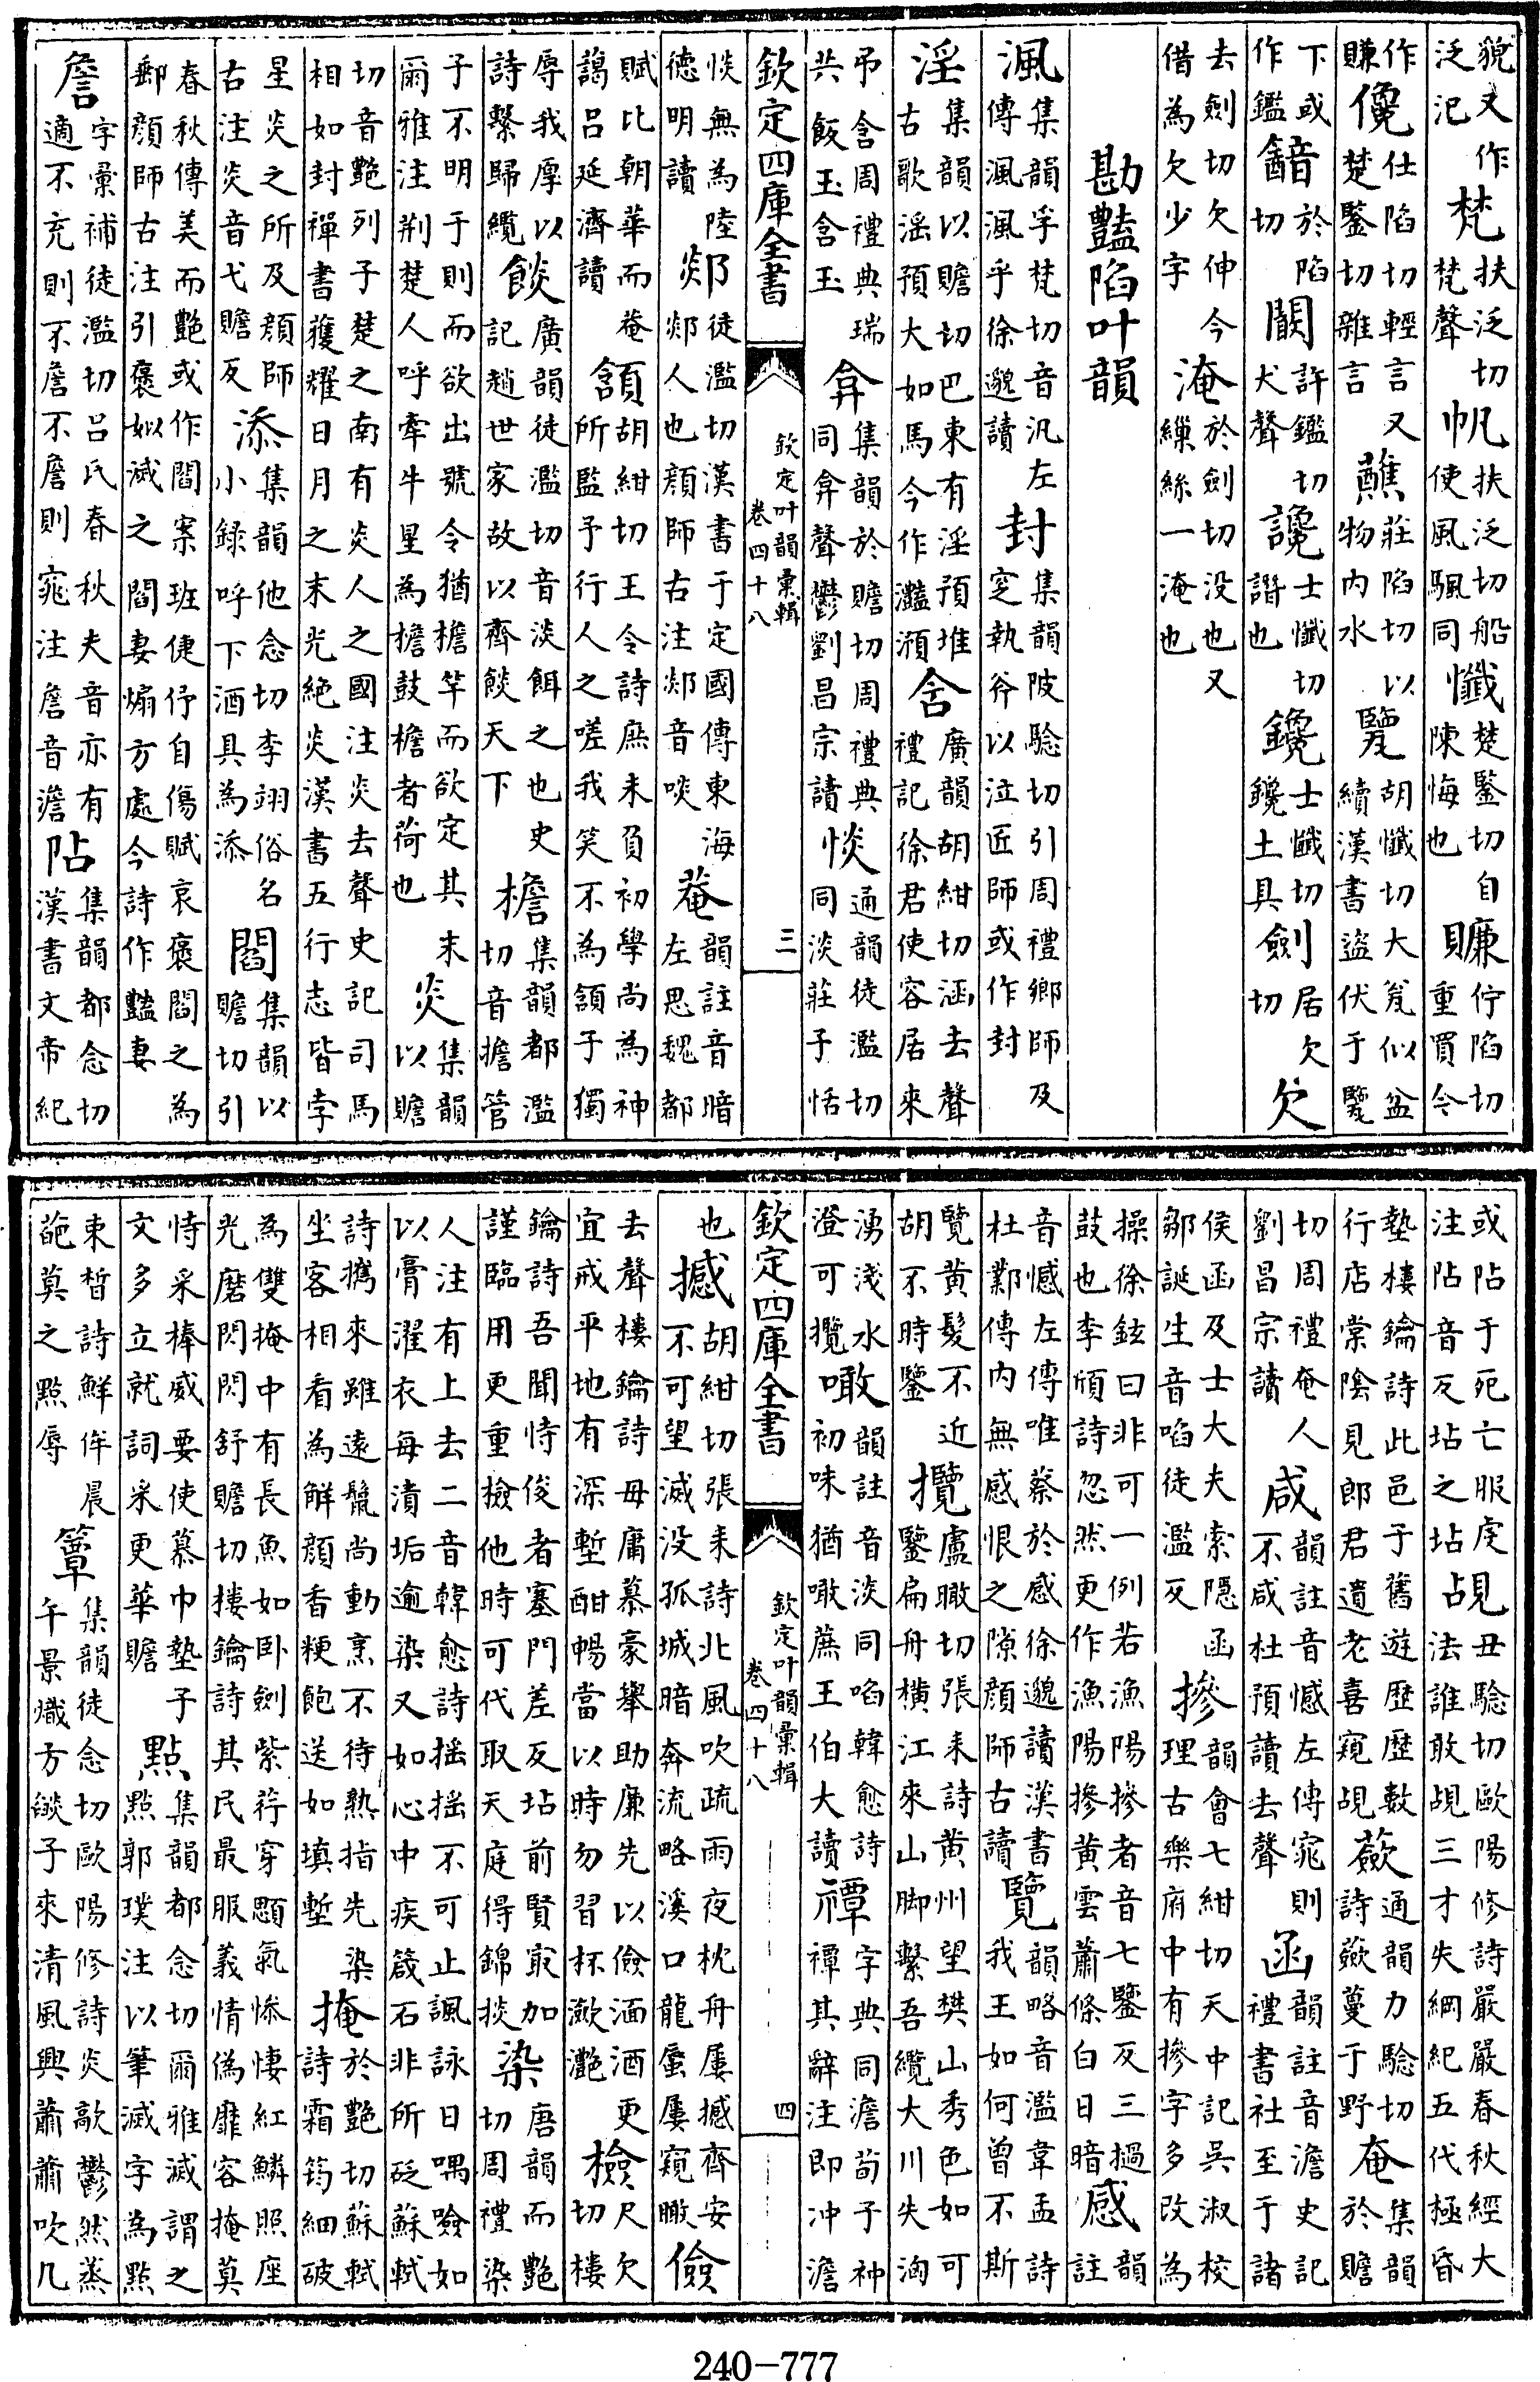 貌又作泛汜梵扶泛切梵聲帆扶泛切船使風颿同懺楚鑒切自陳悔也賺佇陷切重買今
作賺儳仕陷切輕言又楚鑒切雜言蘸莊陷切以物内水胡懺切大瓮似盆續漢書盜伏于
下或作鑑䤃於陷切闞許鑑切犬聲讒士懺切譖也鑱士懺切鑱土具劍居欠切欠
去劍切欠伸今借為欠少字淹於劍切没也又繅絲一淹也
勘豔陷叶韻
渢集韻孚梵切音汎左傳渢渢乎徐邈讀封集韻陂驗切引周禮鄉師及窆執斧以泣匠師或作封
淫集韻以贍切巴東有淫預堆古歌滛預大如馬今作灩澦含廣韻胡紺切涵去聲禮記徐君使容居來
弔含周禮典瑞共飯玉含玉弇集韻於贍切周禮典同弇聲鬱劉昌宗讀惔通韻徒濫切同淡莊子恬
欽定四庫全書 欽定叶韻彙輯 卷四十八 三
惔無為陸德明讀郯徒濫切漢書于定國傳東海郯人也顏師古注郯音啖菴韻註音暗左思魏都
賦比朝華而菴藹呂延濟讀頷胡紺切王令詩庶未負初學尚為神所監予行人之嗟我笑不為頷予獨
辱我厚以詩繫歸纜餤廣韻徒濫切音淡餌之也史記趙世家故以齊餤天下檐集韻都濫切音擔管
子不明于則而欲出號令猶檐竿而欲定其末爾雅注荆楚人呼牽牛星為擔鼓檐者荷也炎集韻以贍
切音艷列子楚之南有炎人之國注炎去聲史記司馬相如封禪書獲耀日月之末光絶炎漢書五行志皆孛
星炎之所及顏師古注炎音弋贍反添集韻他念切李翊俗名小録呼下酒具為添閻集韻以贍切引
春秋傳美而艷或作閻案班倢伃自傷賦哀褒閻之為郵顏師古注引褒姒滅之閻妻煽方處今詩作豔妻
詹字彙補徒濫切呂氏春秋夫音亦有適不充則不詹不詹則窕注詹音澹阽集韻都念切漢書文帝紀
或阽于死亡服虔注阽音反坫之坫覘丑驗切歐陽修詩嚴嚴春秋經大法誰敢覘三才失綱紀五代極昏
墊樓鑰詩此邑于舊遊歷歷數行店棠陰見郎君遺老喜窺覘蘞通韻力驗切詩蘞蔓于野奄集韻於贍
切周禮奄人劉昌宗讀咸韻註音憾左傳窕則不咸杜預讀去聲函韻註音澹史記禮書社至于諸
侯函及士大夫索隱函鄒誕生音啗徒濫反摻韻會七紺切天中記吳淑校理古樂府中有摻字多改為
操徐鉉曰非可一例若漁陽摻者音七鑒反三撾鼓也李頎詩忽然更作漁陽摻黄雲蕭條白日暗感韻註
音憾左傳唯蔡於感徐邈讀漢書杜鄴傳内無感恨之隙顏師古讀覽韻略音濫韋孟詩我王如何曾不斯
覽黄髮不近胡不時鑒攬盧瞰切張耒詩黄州望樊山秀色如可鑒扁舟横江來山脚繫吾纜大川失洶
湧淺水澄可攬噉韻註音淡同啗韓愈詩初味猶噉蔗王伯大讀禫字典同澹荀子神禫其辭注即沖澹
欽定四庫全書 欽定叶韻彙輯 卷四十八 四
也撼胡紺切張耒詩北風吹疏雨夜枕舟屢撼齊安不可望滅没孤城暗奔流略溪口龍蜃屢窺瞰儉
去聲樓鑰詩毋庸慕豪舉助廉先以儉湎酒更宜戒平地有深塹酣暢當以時勿習杯瀲灩檢尺欠切樓
鑰詩吾聞恃俊者塞門差反坫前賢寂加謹臨用更重檢他時可代取天庭得錦掞染唐韻而艷切周禮染
人注有上去二音韓愈詩揺揺不可止諷詠日喁噞如以膏濯衣每漬垢逾染又如心中疾箴石非所砭蘇軾
詩擕來雖遠鬣尚動烹不待熟指先染坐客相看為解顏香粳飽送如填塹掩於艷切蘇軾詩霜筠細破
為雙掩中有長魚如卧劍紫荇穿顋氣慘悽紅鱗照座光磨閃閃舒贍切樓鑰詩其民最服義情偽靡容掩莫
恃采棒威要使慕巾墊子文多立就詞采更華贍點集韻都念切爾雅滅謂之點郭璞注以筆滅字為點
束皙詩鮮侔晨葩莫之點辱簟集韻徒念切歐陽修詩炎歊鬱然蒸午景熾方燄子來清風興蕭蕭吹几
240-777